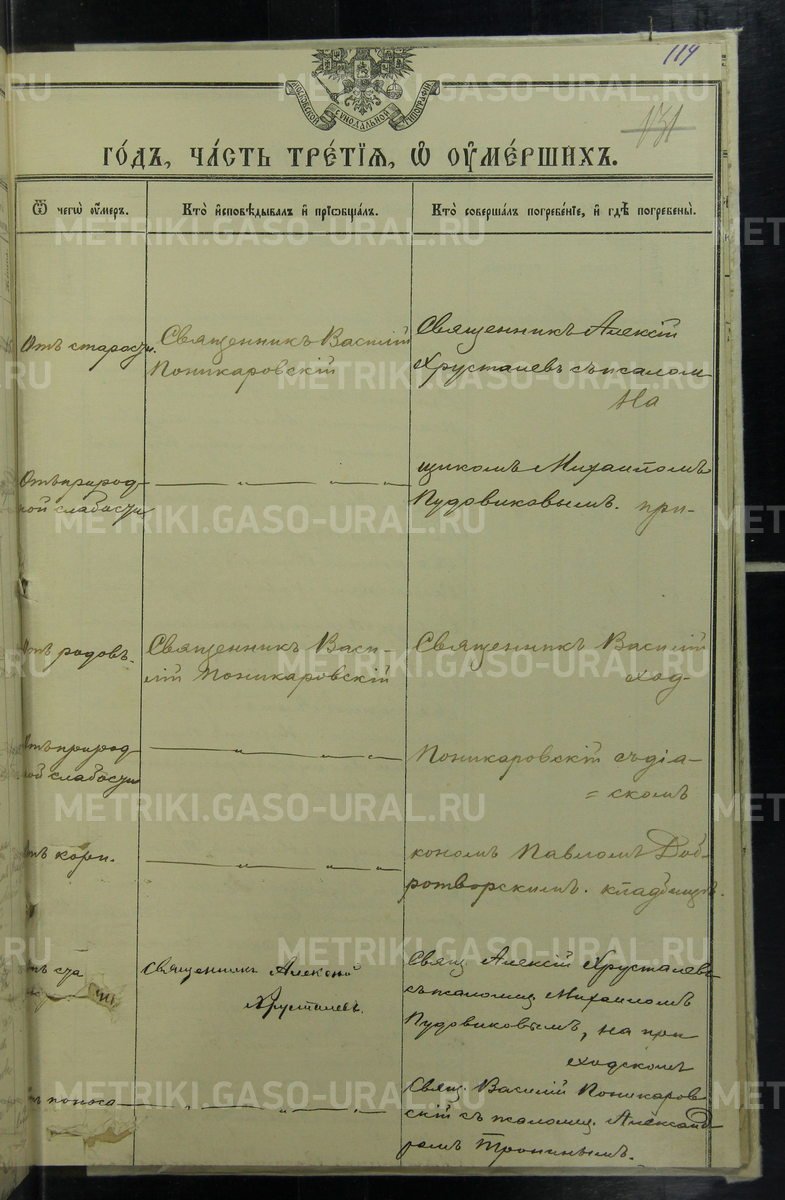 114
131
МОСКОВСКОЙ СѴНОДАЛЬНОЙ ТИПОГРАФІИ
ГО́ДЪ, ЧА́СТЬ ТРЕ́ТІѦ, Ѡ҆ ОУ҆МЕ́РШИХЪ.
Ѿ чегѡ̀ оу҆́меръ.
Кто̀ и҆сповѣ́дывалъ и҆ прїѡбща́лъ.
Кто̀ соверша́лъ погребе́нїе, и҆ гдѣ̀ погребены̀.
Отъ старости.
Священникъ Василій
Поникаровскій
Священникъ Алексій
Хрусталевъ съ псалом-
На
Отъ природ-
ной слабости
— „ — „ — „ —
щикомъ Михаиломъ
Пудовиковымъ. при-
Отъ родовъ.
Священникъ Васи-
лій Поникаровскій
Священникъ Василій
ход-
Отъ природ-
ной слабости
— „ — „ — „ —
Поникаровскій съ діа-
= скомъ
Отъ кори.
— „ — „ — „ —
кономъ Павломъ Доб-
ротворскимъ. кладбищѣ.
отъ ста
Священникъ Алексій
Хрусталевъ.
Свящ. Алексій Хрусталевъ
съ псаломщ. Михаиломъ
Пудовиковымъ, на при
ходскомъ
отъ поноса
— „ — „ — „ —
Свящ. Василій Поникаров
скій съ псаломщ. Александ
ромъ Тронинымъ.
METRIKI.GASO-URAL.RU